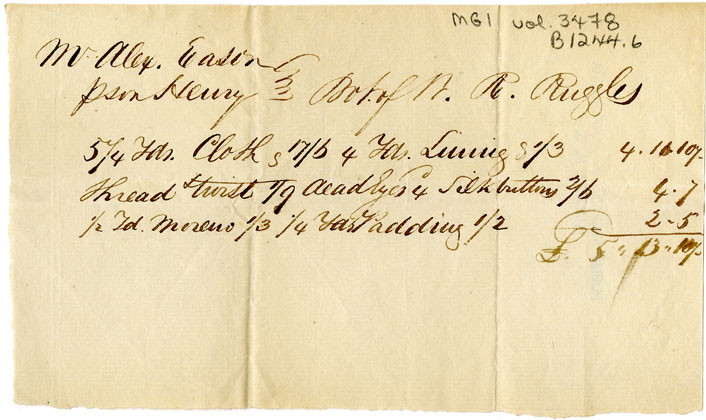 MG1 vol. 3478
B1244.6
Mr Alex. Eason
pson Henry Bot. of N. R. Ruggles
5/4 Yds. Cloth @ 17/6 4 Yds. Lining @ 1/3 4.16.10½
Thread & twist 1/9 4 Silk buttons 2/6 4.7
1/2 Yd. Moreno 1/3 1/4 Yds Padding 1/2 2-5
£. 5"13"10½